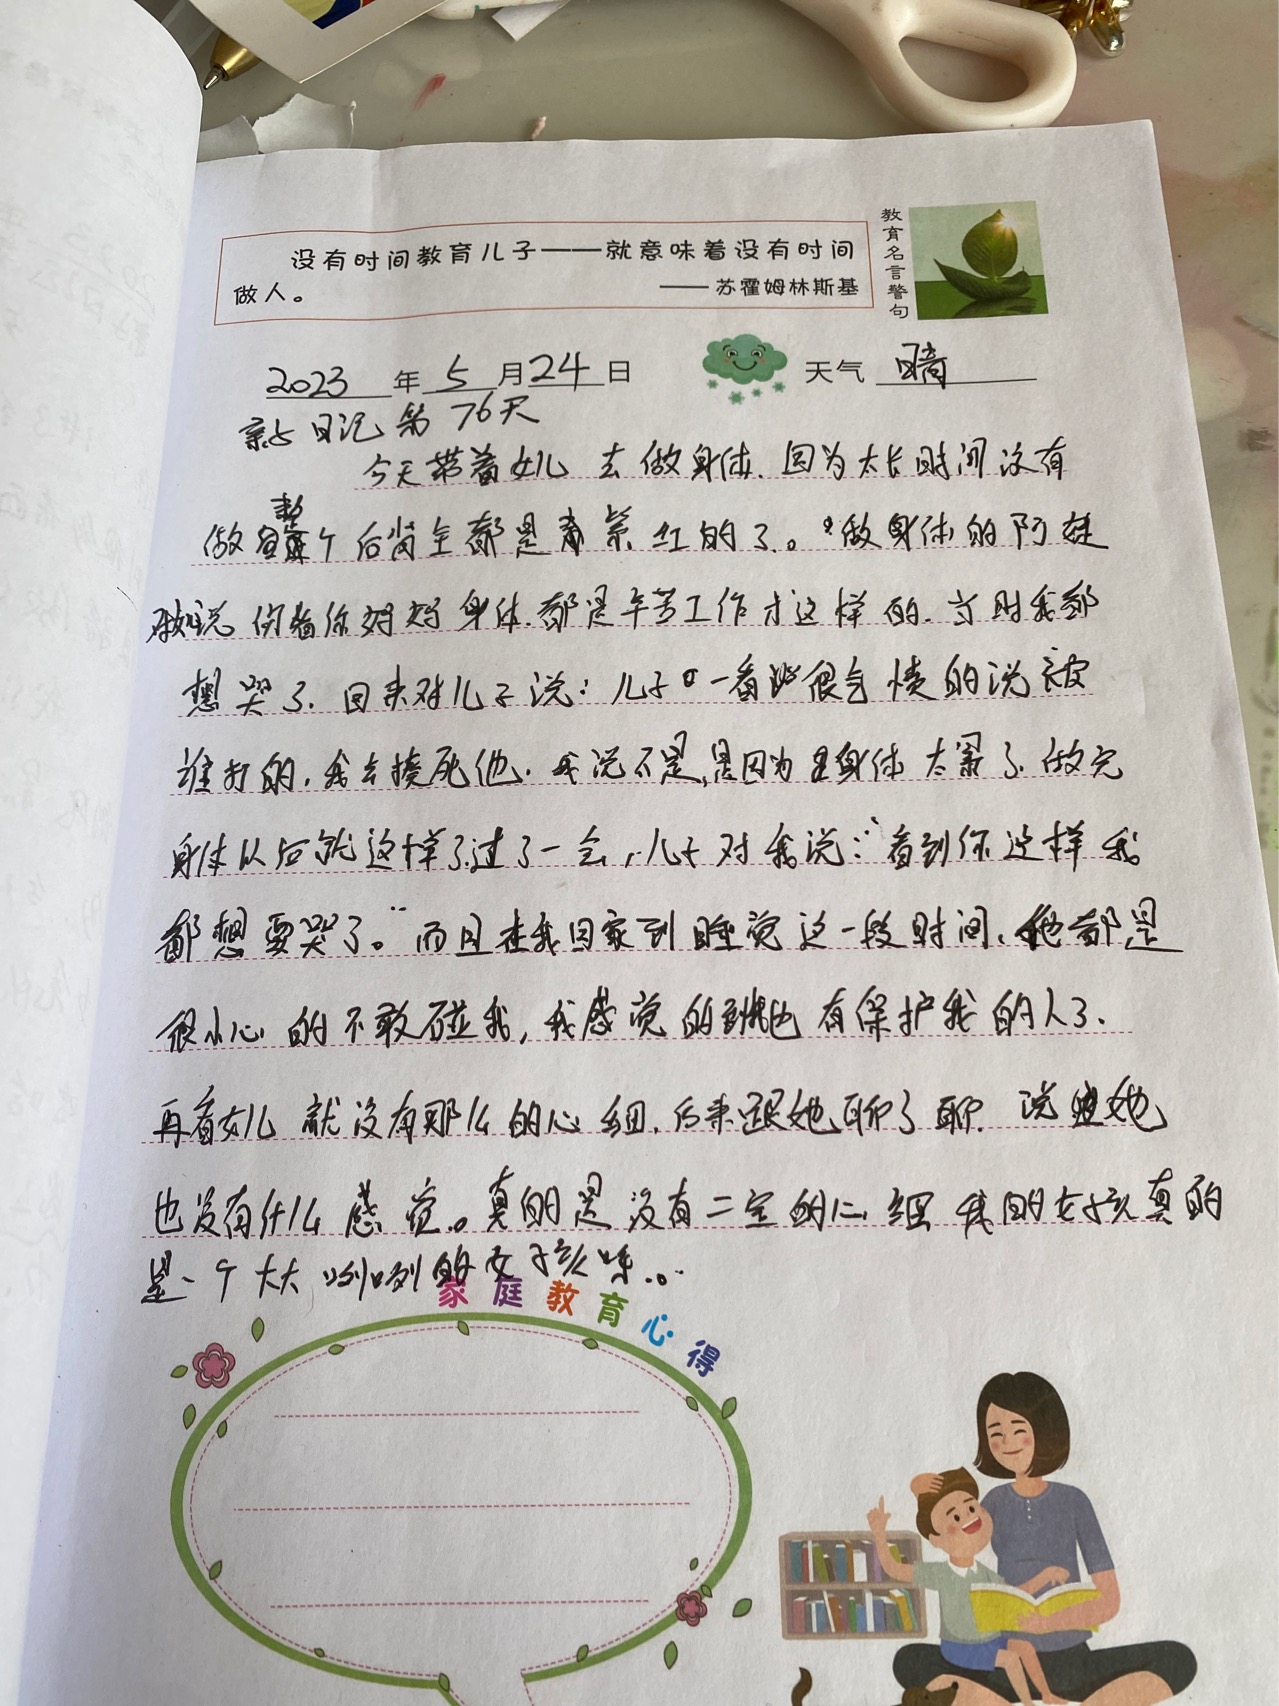 没有时间教育儿子——就意味着没有时间
做人。
——苏霍姆林斯基
教育名言警句
2023年5月24日 天气 晴
亲子日记第76天
今天带着女儿去做身体.因为太长时间没有
做整个后背全都是青紫红的了。做身体的阿姨
说你看你妈妈身体.都是辛苦工作才这样的.当时我都
想哭了.回来对儿子说:儿子一看 很气愤的说被
谁打的.我去揍死他.我说不是,是因为身体太累了.做完
身体以后就这样了.过了一会,儿子对我说:“看到你这样我
都想要哭了。”而且在我回家到睡觉这一段时间,他都是
很小心的不敢碰我,我感觉的到我也有保护我的人了.
再看女儿就没有那么的心细.后来跟她聊了聊.说 她
也没有什么感觉。真的是没有二宝的心细我的女孩真的
是一个大大咧咧的女孩
家庭教育心得